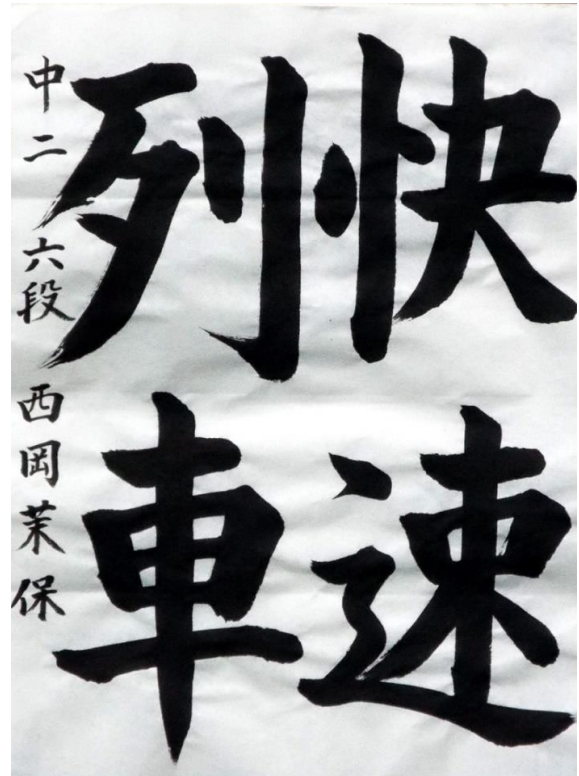 快速
列車
中二 六段 西岡茉保